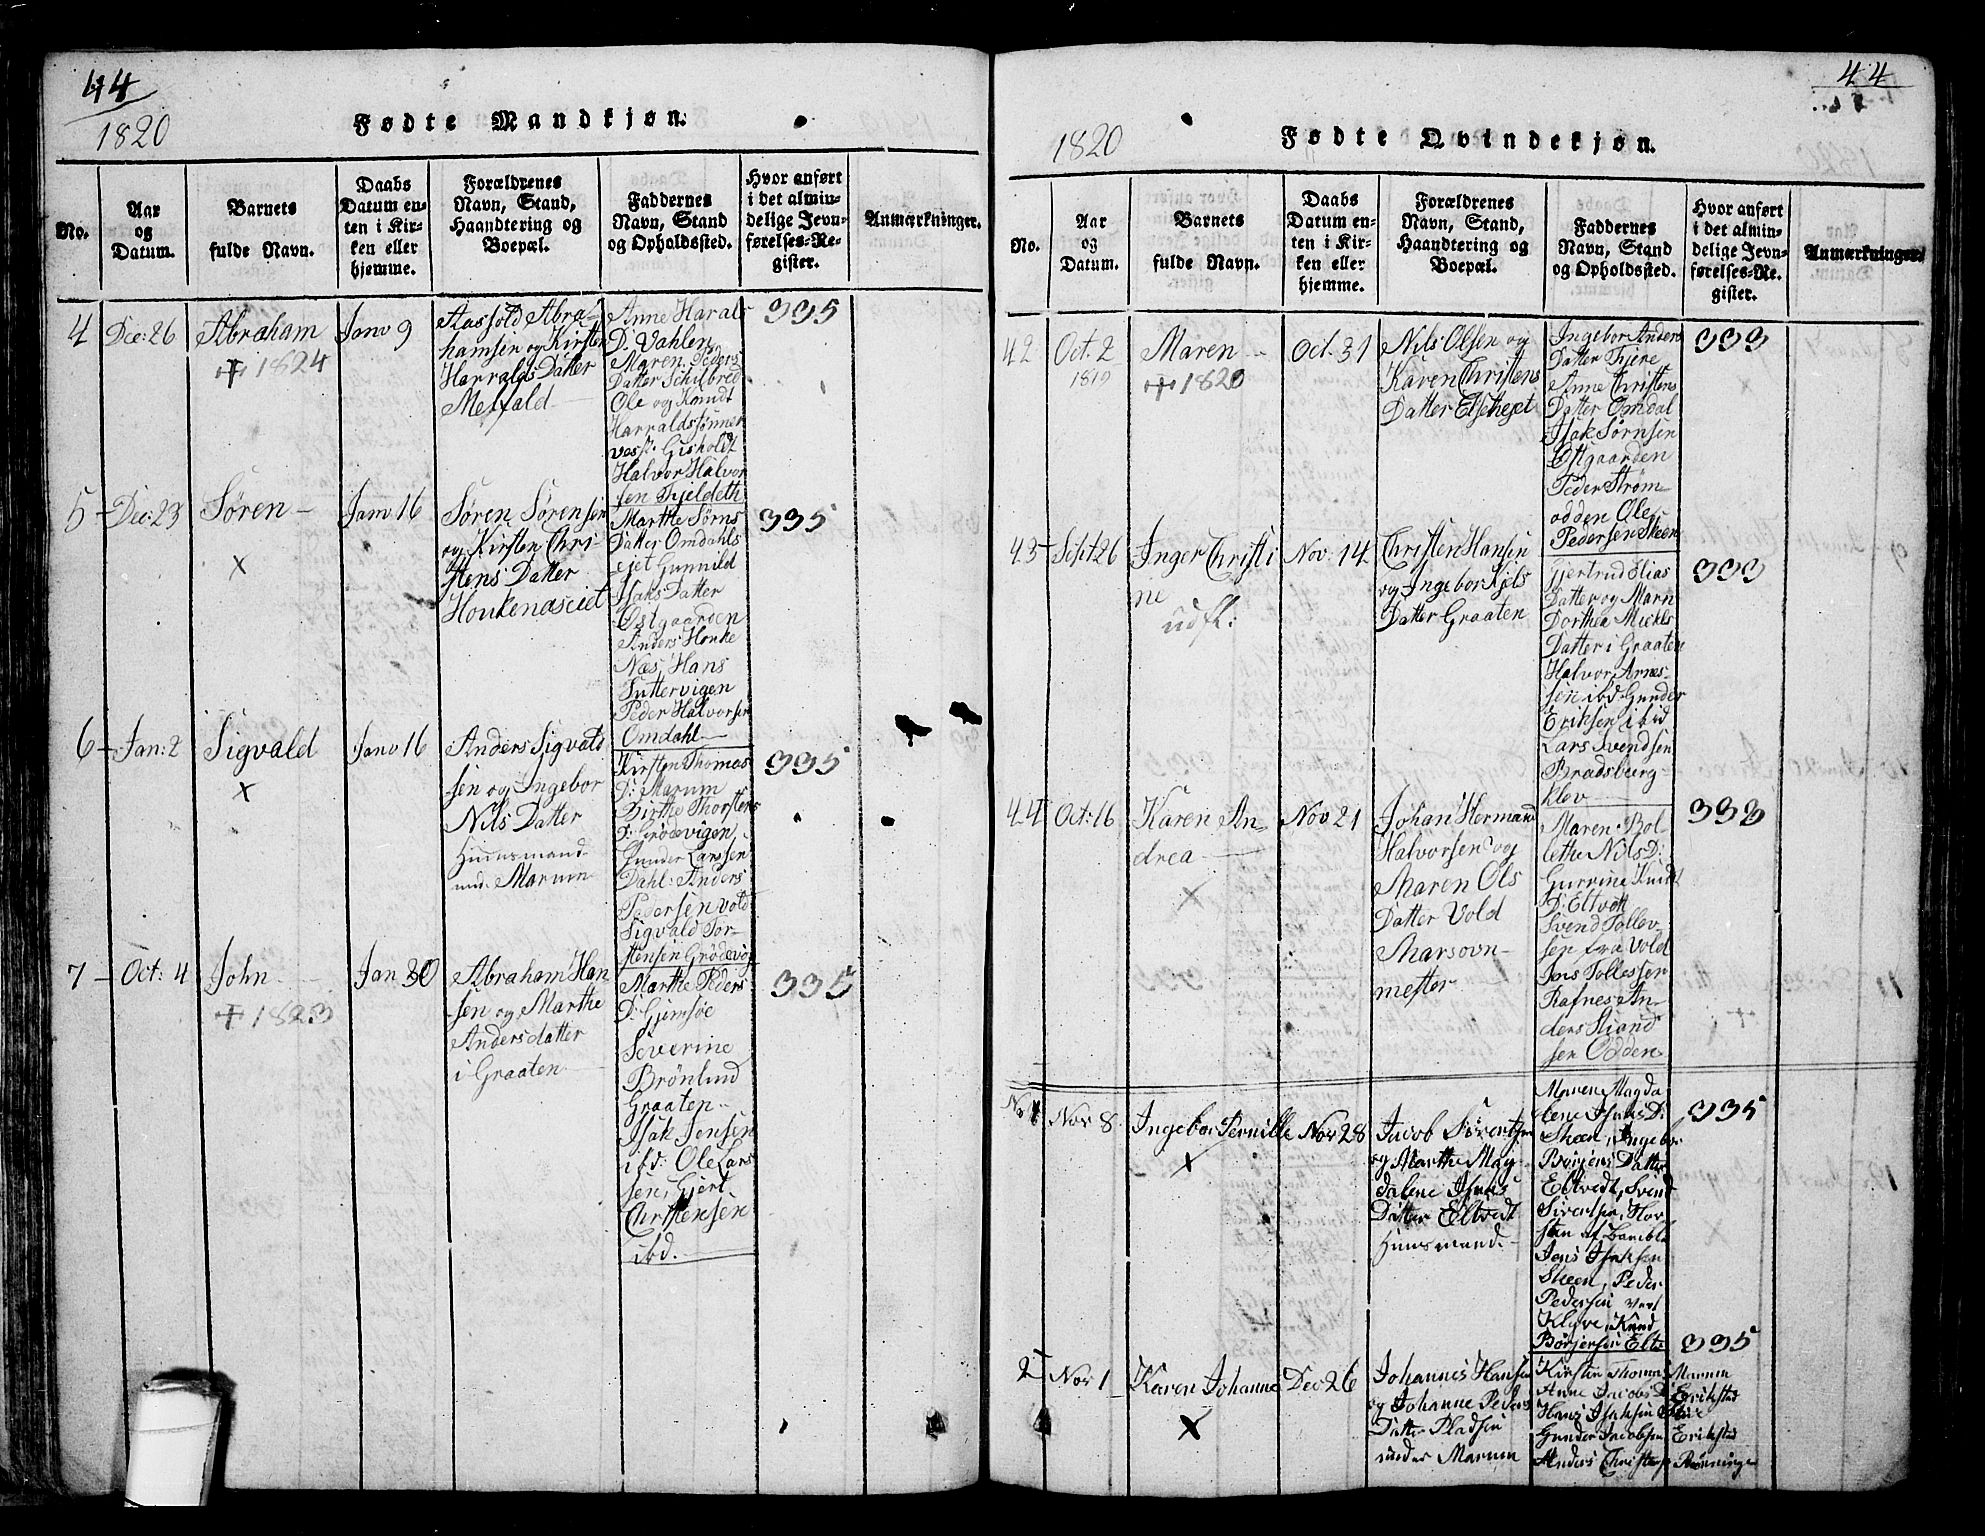 44
1820
Fødte Mandkjøn.
No.
Aar
og
Datum.
Barnets
fulde Navn.
Daabs
Datum en-
ten i Kir-
ken eller
hjemme.
Forældrenes
Navn, Stand,
Haandtering og
Boepæl.
Faddernes
Navn, Stand
og Opholdssted.
Hvor anført
i det almin-
delige Jevn-
førelses-Re-
gister.
Anmærkninger.
4
Dec: 26
Abraham
+ 1824
Janv 9
Aasfold Abra-
hamsen og Kirsten
Harralds Datter
Melfald
Anne Harals
D. Vahlen
Maren Peders
Datter Schilbred
Ole og Knudt
Harraldsønner
vest. Gisholdt
Halvor Halvor
sen Fjeldeth
335
5 - Dec: 23
Søren -
x
Janv 16
Søren Sørensen
og Kirsten Chri-
stens Datter
Houkenæseiet
Marthe Sørns
Datter Omdahls
eiet Gunnild
Isaks Datter
Østgaarden
Anders Houke
Næs, Hans
Futtervigen
Peder Halvorsen
Omdahl
335
6 - Jan: 2
Sigvald
x
Janv 16
Anders Sigvald
sen og Ingebor
Nils Datter
Huusmand
und. Marum
Kirsten Thomas
D: Marum
Birthe Thorstens
D: Grødevigen
Gunder Larssen
Dahl: Anders
Pedersen vold
Sigvald Tor-
stensen Grødevig
335
7 - Oct: 4
John
+ 1823
Jan 30
Abraham Han-
sen og Marthe
Anders datter
i Graaten
Marthe Peders
D: Gjemsøe
Severine
Brønlund
Graaten
Isak Jensen
ibd: Ole Lars
sen, Gjert
Christensen
ibd.
335
44
1820
Fødte Qvindekjøn.
No.
Aar
og
Datum.
Barnets
fulde Navn.
Daabs
Datum en-
ten i Kir-
ken eller
hjemme.
Forældrenes
Navn, Stand,
Haandtering og
Boepæl.
Faddernes
Navn, Stand
og Opholdssted.
Hvor anført
i det almin-
delige Jevn-
førelses-Re-
gister.
Anmærkninger
42
Oct. 2
1819
Maren
+ 1820
Oct. 31
Nils Olsen og
Karen Christens
Datter Elseheiet
Ingebor Anders
Datter Tjere
Anne Christens
Datter Omdal
Isak Sørnsen
Østgaarden
Peder Strøm-
odden Ole
Pedersen Skeen
333
43 - Sept 26
Inger Christi
ne
udfl:
Nov: 14
Christen Hansen
og Ingebor Kjøls
Datter Graaten
Gjertrud Elias
Datter og Marn
Dorthea Mickls
Datter i Graaten
Halvor Arnes-
sen ibd. Gunder
Eriksen ibid
Lars Svendsen
Bradsberg-
klev
333
44
Oct: 16
Karen An-
drea
x
Nov 21
Johan Herman
Halvorsen og
Maren Ols
Datter Vold
Marsovn-
mester
Maren Bol-
lethe Nils D:
Gurrine Knudt
D: Eltvett
Svend Tollev-
sen fra Vold
Jens Tollessen
Rafnes An-
ders Stiand
sen Odden
333
No 1
Nov 8
Ingebor Pernille
x
Nov 28
Jacob Sørensen
og Marthe Mag-
dalene Isaks
Datter Eltvedt
Huusmand
Maren Magda
lene Isaks D:
Skeen, Ingebor
Børjens Datter
Eltvedt, Svend
Sivertsen, Hov
sten af Bamble
Jens Isaksen
Skeen, Peder
Pedersen vest
Klyve, Knud
Børjersen Eltv
335
2
Nov 1
Karen Johanne
x
Dec 26
Johannes Hansen
og Johanne Peders
Datter Pladsen
under Marum
Kirsten Thomæ Marum
Anne Jacobs D Erikstad
Hans Isaksen
Gunder Jacobsen Erikstad
Anders Christens Rønninge
335